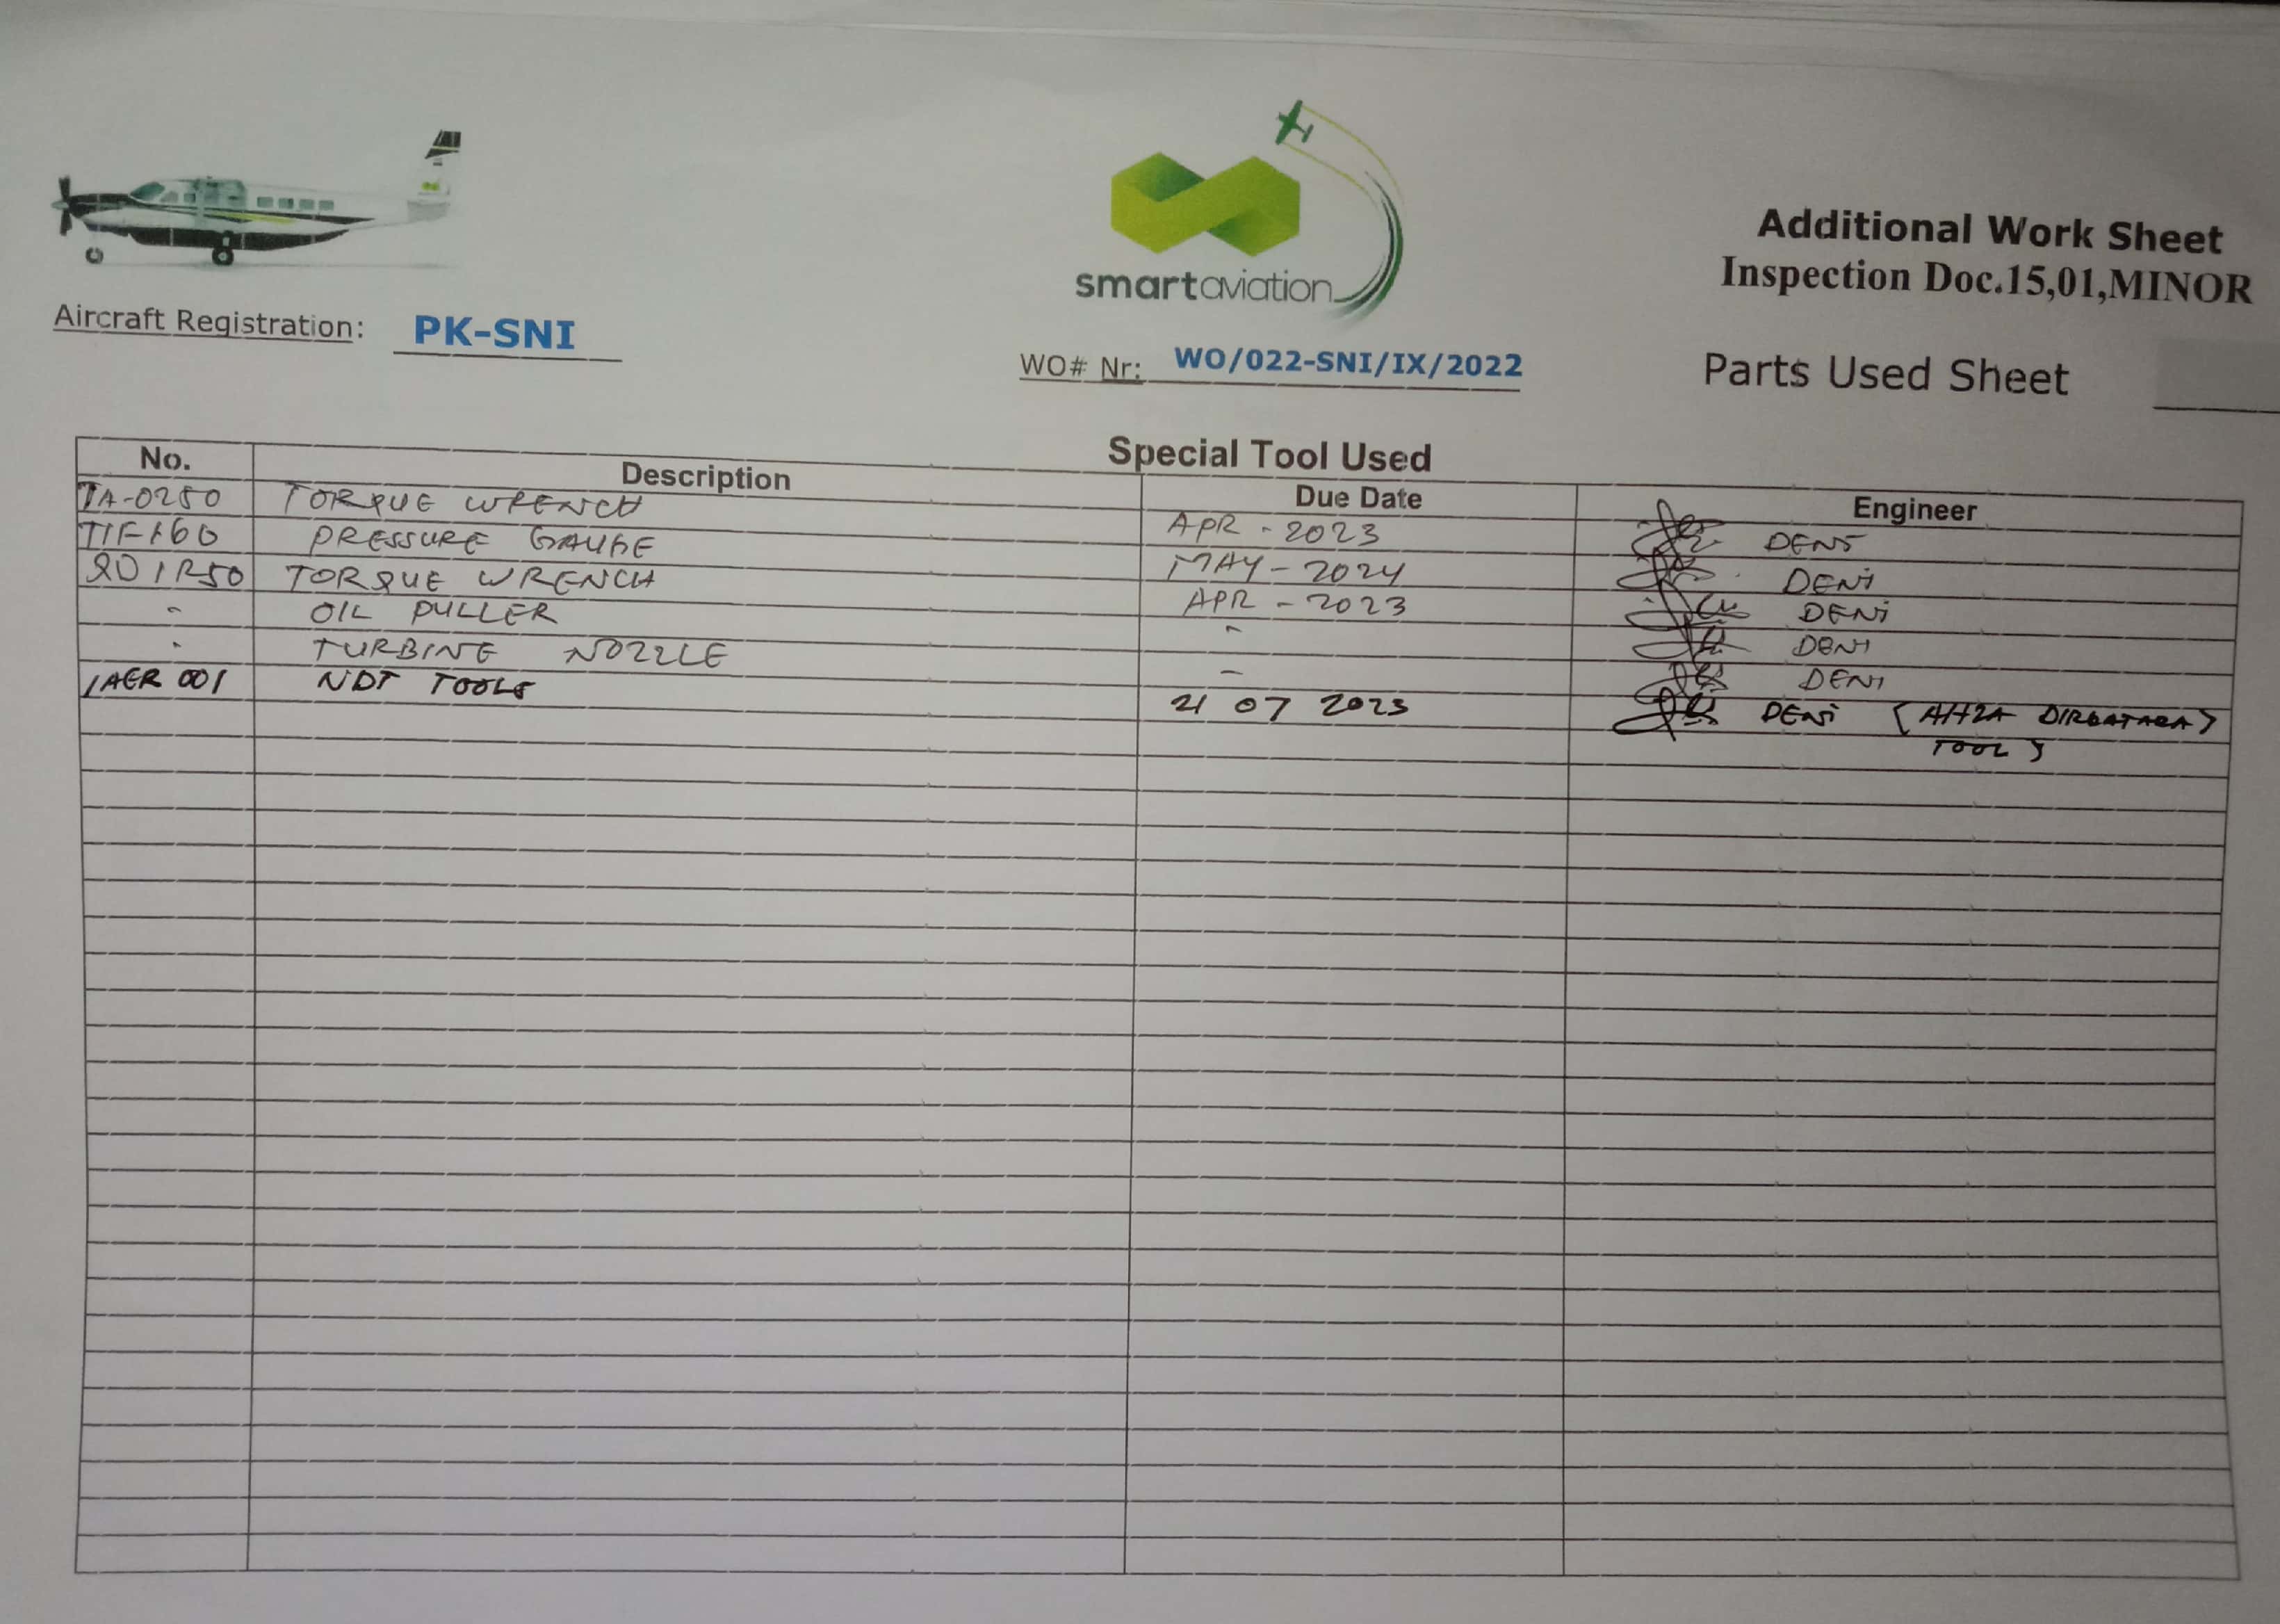 smartaviation
Additional Work Sheet
Inspection Doc.15,01,MINOR
Aircraft Registration: PK-SNI
WO# Nr: WO/022-SNI/IX/2022
Parts Used Sheet
Special Tool Used
No. Description Due Date Engineer
TA-0250 TORQUE WRENCH APR - 2023 DENI
PRESSURE GAUGE MAY - 2024 DENI
TORQUE WRENCH APR - 2023 DENI
- OIL PULLER - DENI
- TURBINE NOZZLE - DENI
IAER 001 NDT TOOLS 21 07 2023 DENI (AHZA DIRGATARA
TOOL)